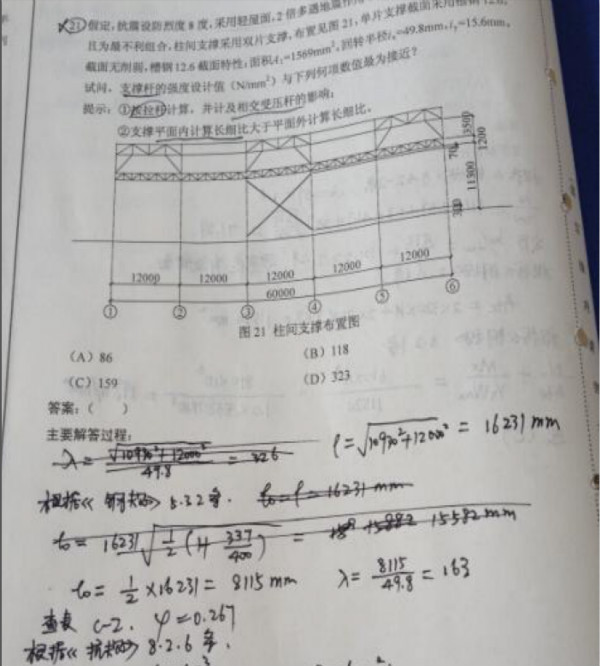 21 假定,抗震设防烈度8度,采用轻屋面,2倍多遇地震作用
且为最不利组合,柱间支撑采用双片支撑,布置见图21,单片支撑截面采用槽钢12.6,
截面无削弱,槽钢12.6截面特性:面积A₁=1569mm²,回转半径iₓ=49.8mm,iᵧ=15.6mm。
试问,支撑杆的强度设计值(N/mm²)与下列何项数值最为接近?
提示:①按拉杆计算,并计及相交受压杆的影响;
②支撑平面内计算长细比大于平面外计算长细比。
3500
1200
700
11300
300
12000 12000 12000 12000 12000
60000
① ② ③ ④ ⑤ ⑥
图21 柱间支撑布置图
(A) 86 (B) 118
(C) 159 (D) 323
答案:( )
主要解答过程:
λ= √10930²+12000² / 49.8 = 326
l=√10930²+12000² = 16231mm
根据《钢规》5.3.2条. l₀=l=16231mm
l₀= 16231√1/2(1+337/400) = 15582mm
l₀= 1/2×16231= 8115mm λ= 8115/49.8 =163
查表 C-2. φ=0.267
根据《抗规》8.2.6条.